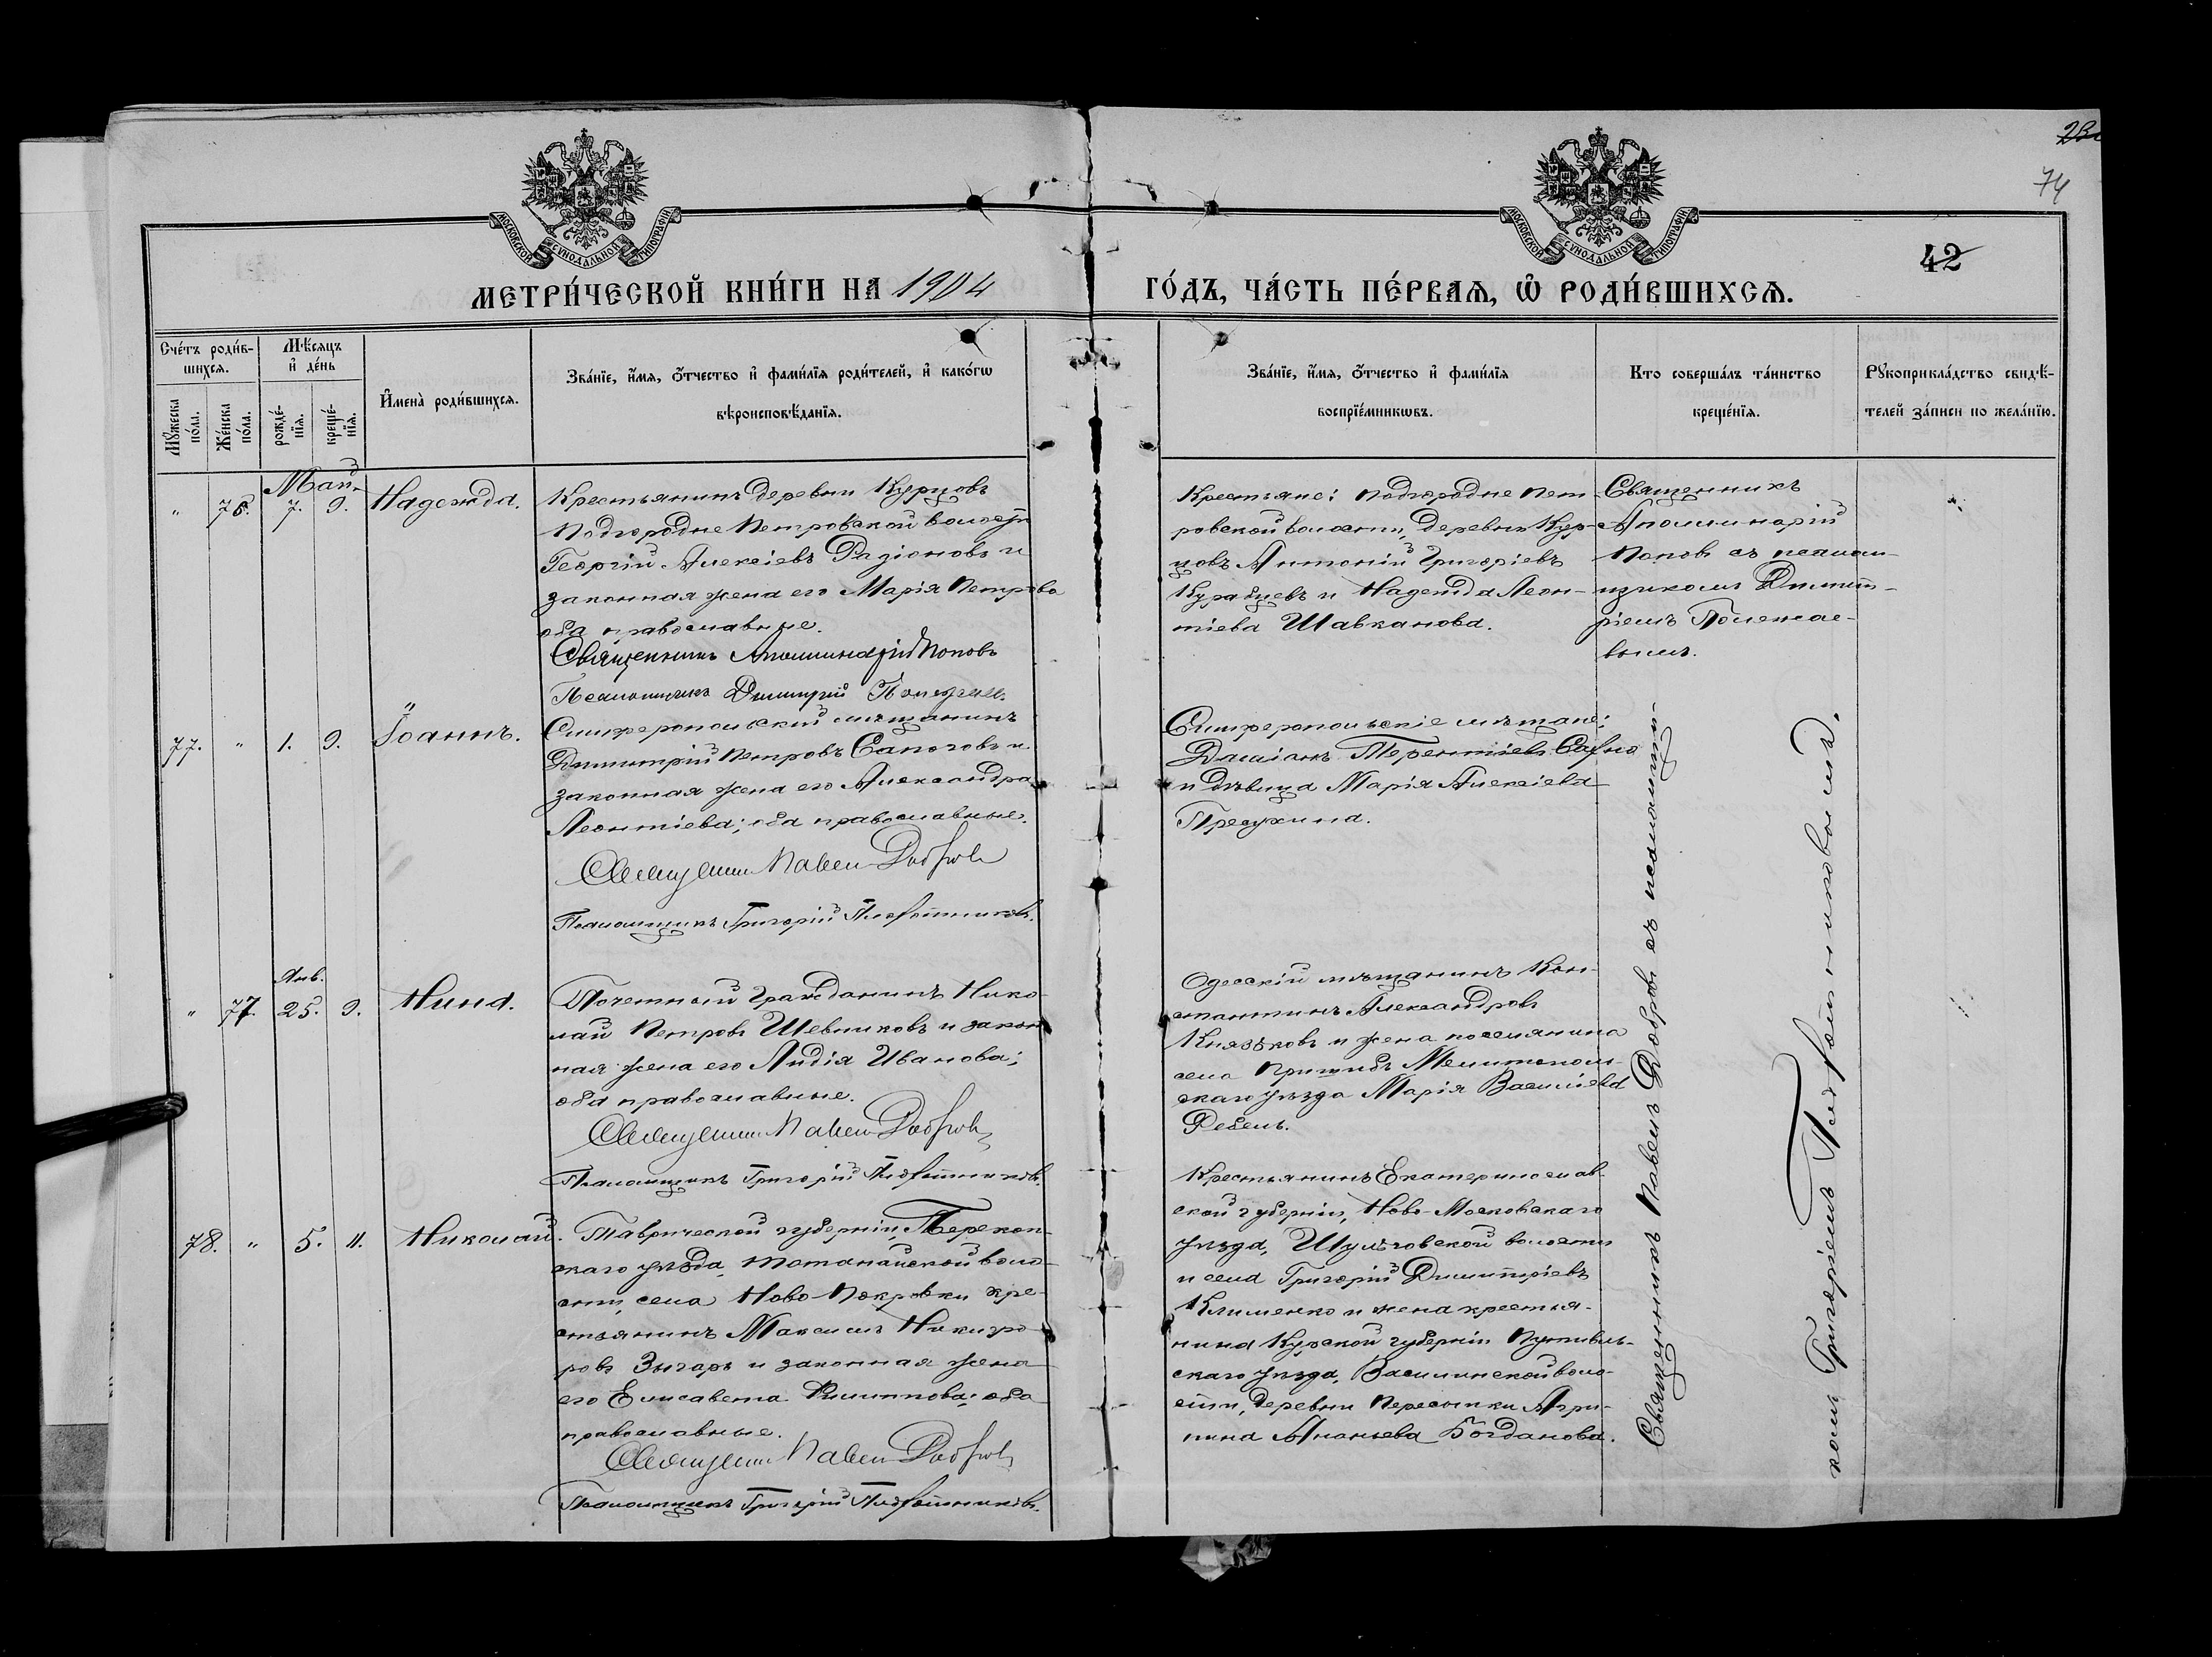 23
74
42
МОСКОВСКОЙ СѴНОДАЛЬНОЙ ТИПОГРАФІИ
МОСКОВСКОЙ СѴНОДАЛЬНОЙ ТИПОГРАФІИ
МЕТРИ́ЧЕСКОЙ КНИ́ГИ НА 1904
ГО́ДЪ, ЧА́СТЬ ПЕ́РВАѦ, Ѽ РОДИ́ВШИХСѦ.
Сче́тъ роди́в-
шихсѧ.
Мꙋ́жеска
по́ла.
Же́нска
по́ла.
Мѣ́сѧцъ
и҆ де́нь
рожде́-
нїѧ.
креще́-
нїѧ.
И҆мена̀ роди́вшихсѧ.
Зва́нїе, и҆́мѧ, ѻ҆́тчество и҆ фами́лїѧ роди́телей, и҆ како́гѡ
вѣроисповѣ́данїѧ.
Зва́нїе, и҆́мѧ, ѻ҆́тчество и҆ фами́лїѧ
воспрїе́мникѡвъ.
Кто соверша́лъ та́инство
креще́нїѧ.
Рꙋкоприкла́дство свидѣ́-
телей за́писи по жела́нїю.
Май.
" 76. 7. 9. Надежда.
Крестьянинъ деревни Курцовъ
Подгородне Петровской волости
Георгій Алексіевъ Радіоновъ и
законная жена его Марія Петрова
оба православные.
Священникъ Аполлинарій Поповъ
Псаломщикъ Димитрій
Крестьяне: Подгородне Пет-
ровской волости, деревни Кур-
цовъ Антоній Григоріевъ
Курабцевъ и Надежда Леон-
тіева Шавканова.
Священникъ
Аполлинарій
Поповъ съ псалом-
щикомъ Димит-
ріемъ Полежае-
вымъ.
77. " 1. 9. Іоаннъ.
Симферопольскій мѣщанинъ
Димитрій Петровъ Сапоговъ и
законная жена его Александра
Леонтіева; оба православные.
Священник Павел Добров
Псаломщикъ Григорій Плотниковъ.
Симферопольскіе мѣщане:
Даміанъ Терентіевъ
и дѣвица Марія Алексіева
Пресухина.
Янв.
" 77. 25. 9. Нина.
Почетный Гражданинъ Нико-
лай Петровъ Шевниковъ и закон
ная жена его Лидія Иванова;
оба православные.
Священник Павел Добров
Псаломщикъ Григорій Плотниковъ.
Одесскій мѣщанинъ Кон-
стантинъ Александровъ
Князьковъ и жена поселянина
села Пришибъ Мелитополь-
скаго уѣзда Марія Василіева
Ребель.
78. " 5. 11. Николай.
Таврической губерніи, Перекоп-
скаго уѣзда, Тотанайской воло-
сти, села Ново-Покровки кре-
стьянинъ Максимъ Никифо-
ровъ Зыгарь и законная жена
его Елисавета Филиппова; оба
православные.
Священник Павел Добров
Псаломщикъ Григорій Плотниковъ.
Крестьянинъ Екатеринослав-
ской губерніи, Ново-Московскаго
уѣзда, Шульговской волости
и села Григорій Димитріевъ
Клименко и жена крестья-
нина Курской губерніи Путивль-
скаго уѣзда, волости,
деревни Пересыпки Агри-
пина Ананьева Богданова.
Священникъ Павелъ Добровъ съ псаломщи-
комъ Григоріемъ Плотниковымъ.